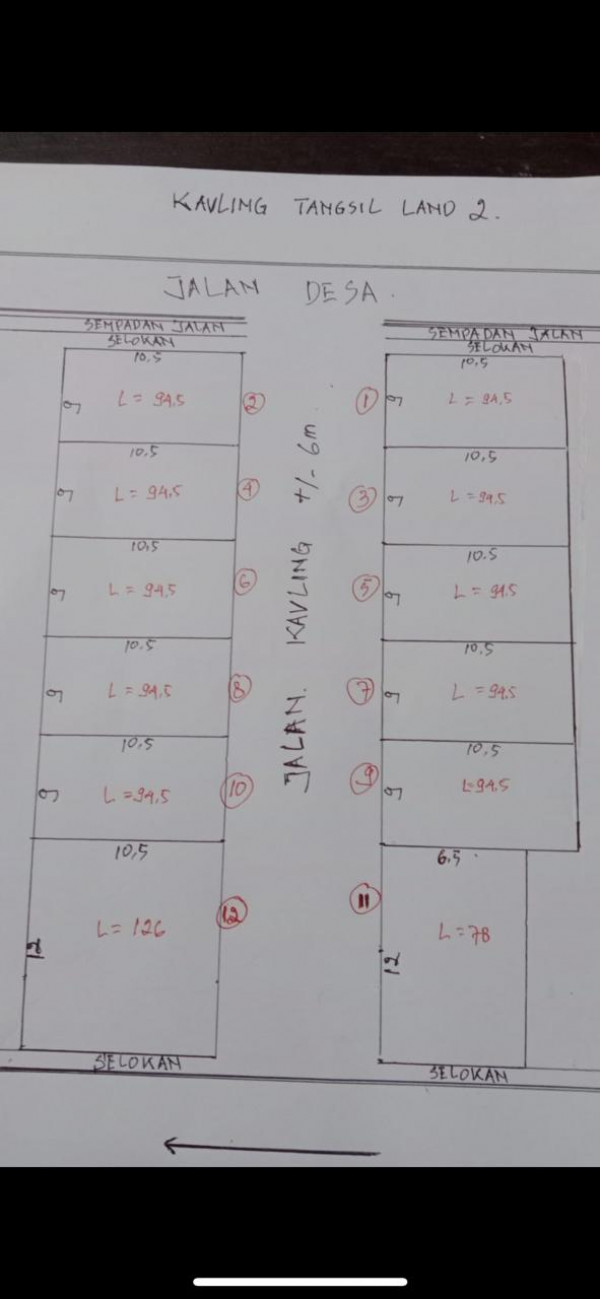 KAVLING TANGSIL LAND 2.
JALAN DESA.
SEMPADAN JALAN
SELOKAN
10,5
9
L = 94,5
2
10,5
9
L = 94,5
4
10,5
9
L = 94,5
6
10,5
9
L = 94,5
8
10,5
9
L = 94,5
10
10,5
12
L = 126
12
SELOKAN
JALAN. KAVLING +/- 6m.
SEMPADAN JALAN
SELOKAN
10,5
1
9
L = 94,5
10,5
3
9
L = 94,5
10,5
5
9
L = 94,5
10,5
7
9
L = 94,5
10,5
9
9
L = 94,5
6,5
11
12
L = 78
SELOKAN